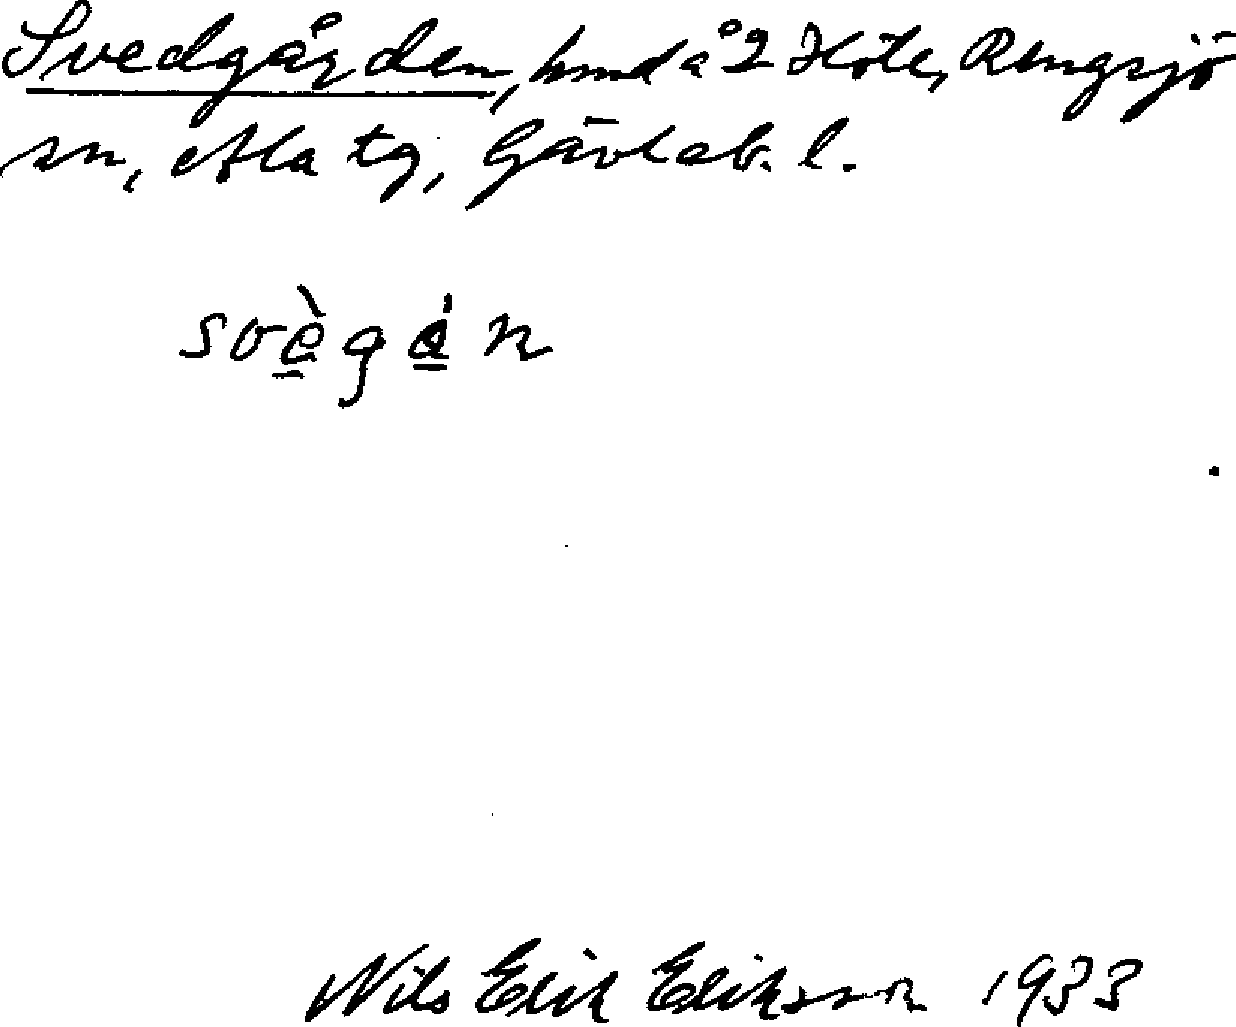 Svedgården, hmd å 2 Höle, Rengsjö
sn, Ala tg, Gävleb. l.
Nils Erik Eriksson 1933